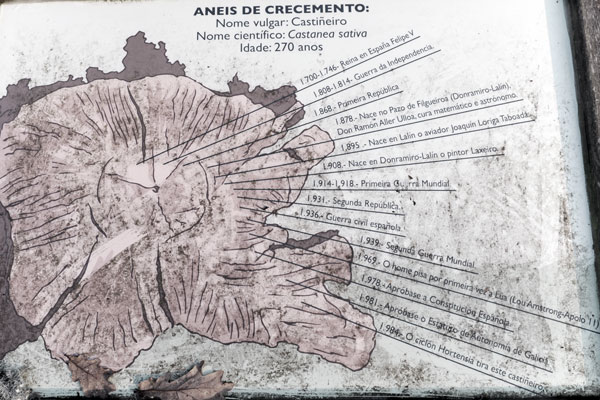 ANEIS DE CRECEMENTO:
Nome vulgar: Castiñeiro
Nome científico: Castanea sativa
Idade: 270 anos
1.700-1.746- Reina en España Felipe V
1.808-1.814- Guerra da Independencia.
1.868.- Primeira República
1.878.- Nace no Pazo de Filgueiroa (Donramiro-Lalín),
Don Ramón Aller Ulloa, cura matemático e astrónomo.
1,895 .- Nace en Lalín o aviador Joaquín Loriga Taboada.
1.908.- Nace en Donramiro-Lalín o pintor Laxeiro.
1.914-1.918.- Primeira Guerra Mundial.
1.931.- Segunda República.
1.936.- Guerra civil española.
1.939.- Segunda Guerra Mundial.
1.969.- O home pisa por primeira vez a Lúa (Lou Amstrong-Apolo 11)
1.978.- Apróbase a Constitución Española
1.981.- Apróbase o Estatuto de Autonomía de Galicia
1.984.- O ciclón Hortensia tira este castiñeiro.